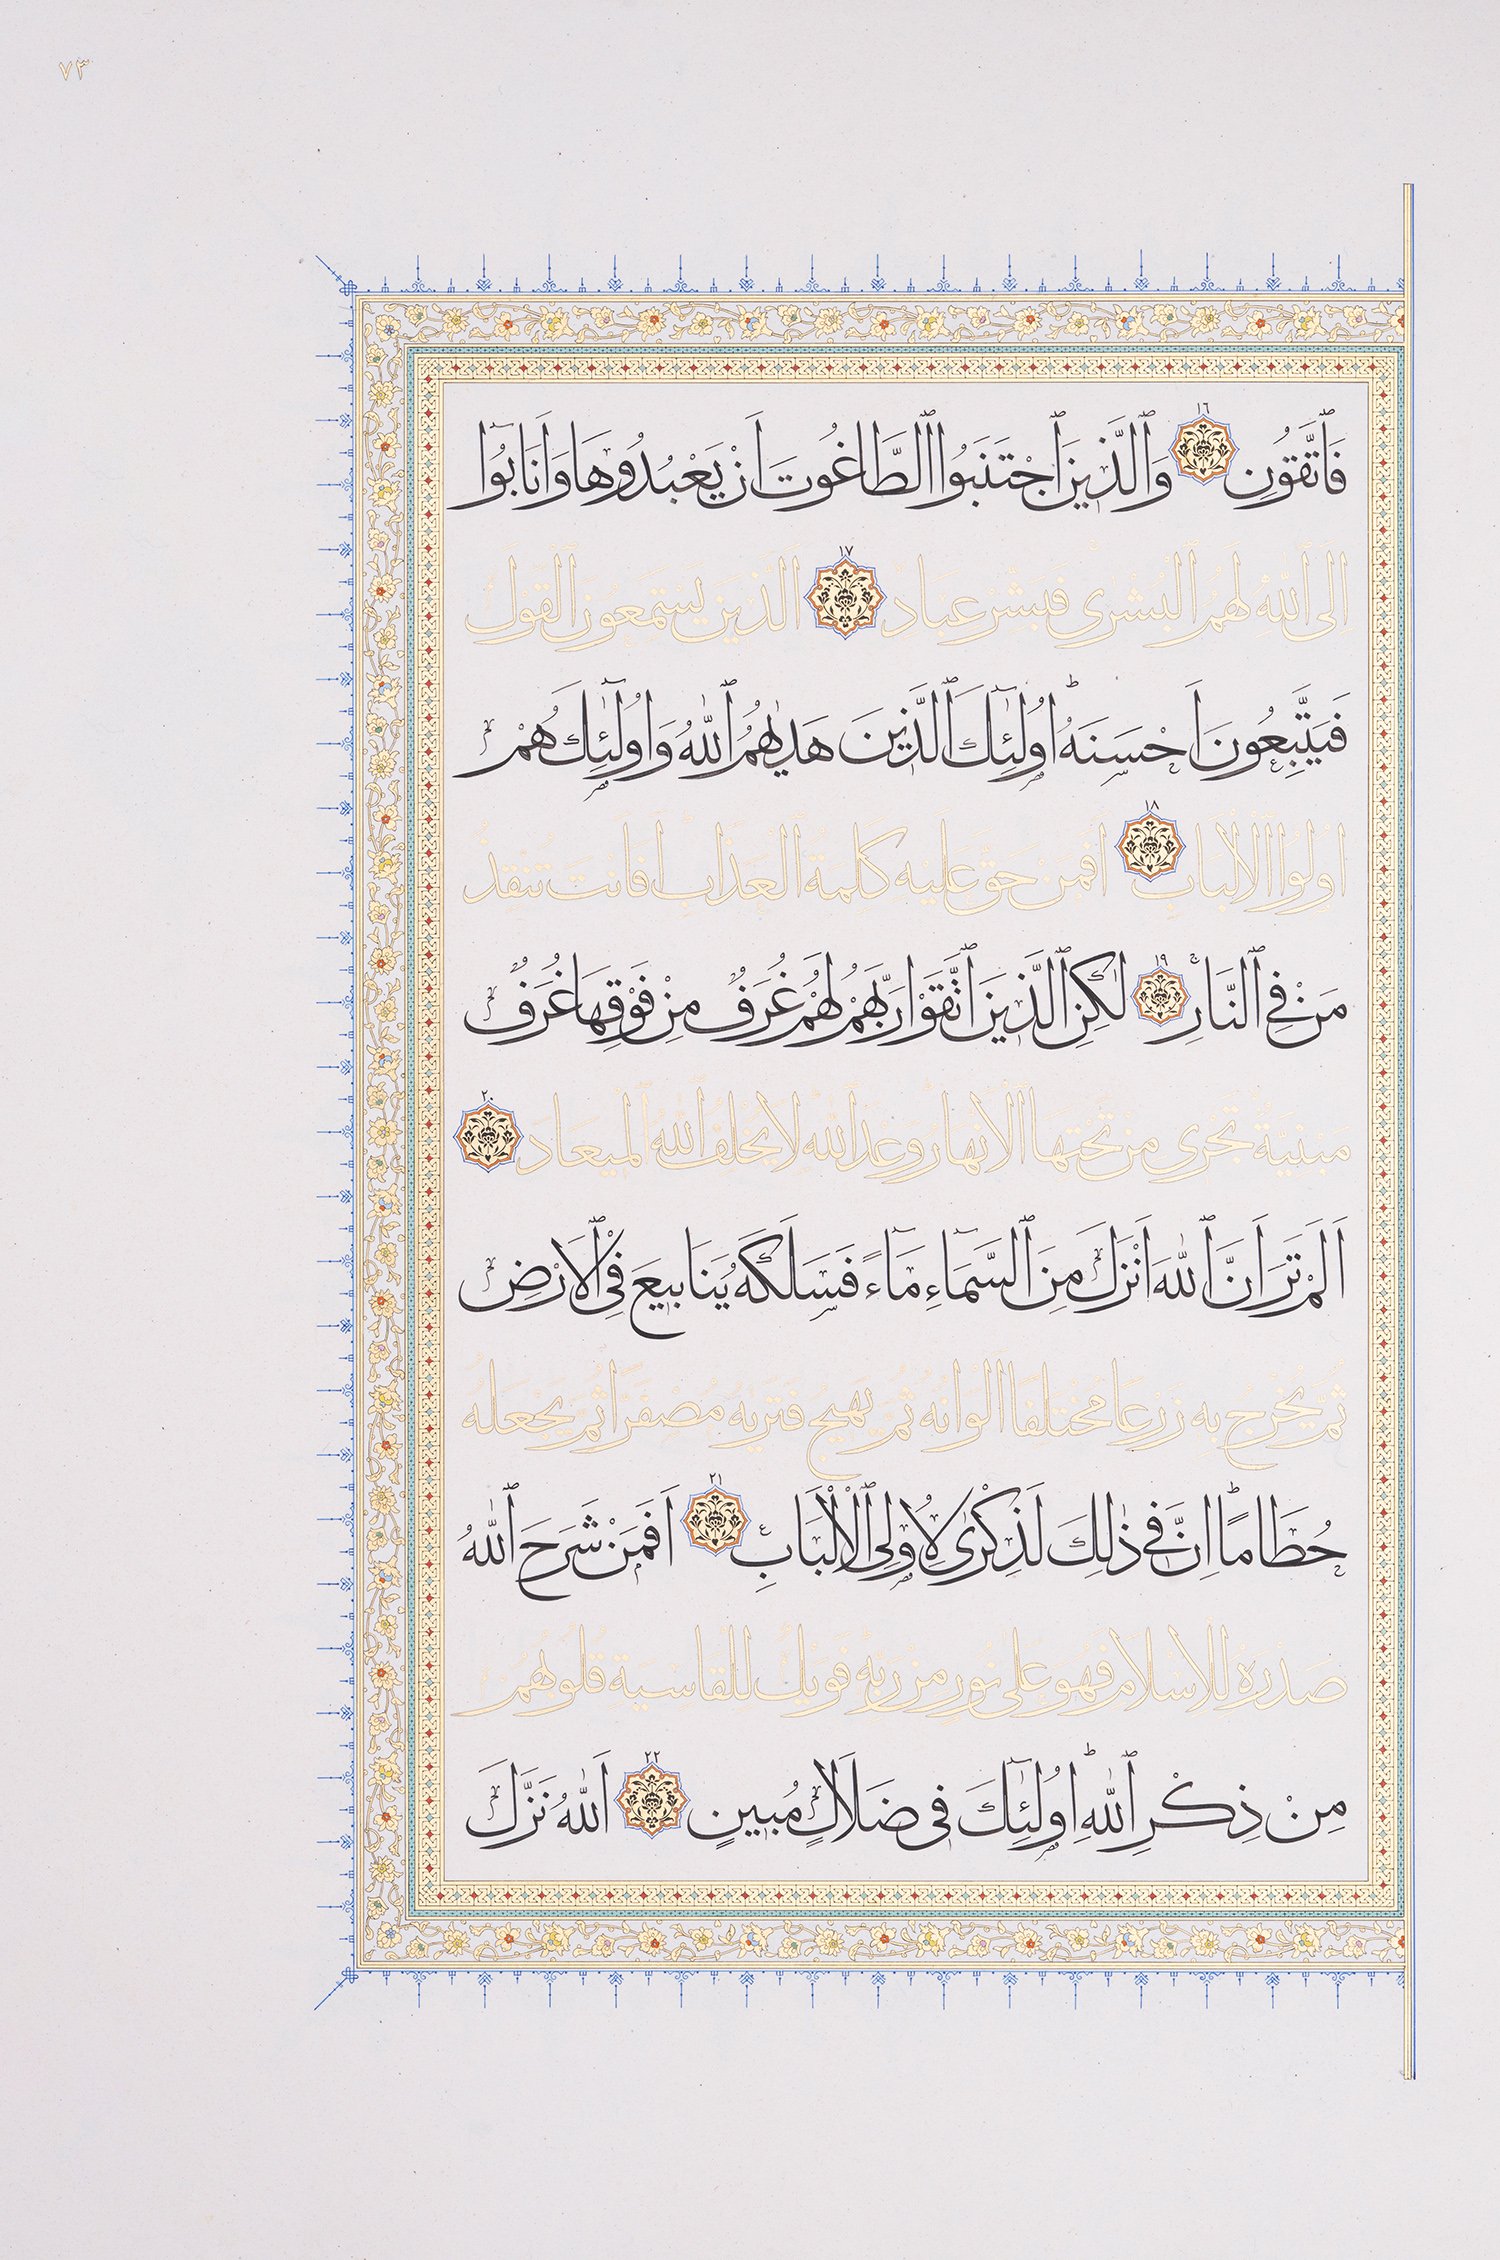 ٧٣
فَٱتَّقُونِ ١٦ وَٱلَّذِينَ ٱجْتَنَبُوا ٱلطَّاغُوتَ اَنْ يَعْبُدُوهَا وَاَنَابُٓوا
اِلَى ٱللّٰهِ لَهُمُ ٱلْبُشْرٰى فَبَشِّرْ عِبَادِ ١٧ اَلَّذِينَ يَسْتَمِعُونَ ٱلْقَوْلَ
فَيَتَّبِعُونَ اَحْسَنَهُ اُو۬لٰٓئِكَ ٱلَّذِينَ هَدٰيهُمُ ٱللّٰهُ وَاُو۬لٰٓئِكَ هُمْ
اُو۬لُوا ٱلْاَلْبَابِ ١٨ اَفَمَنْ حَقَّ عَلَيْهِ كَلِمَةُ ٱلْعَذَابِ اَفَاَنْتَ تُنْقِذُ
مَنْ فِي ٱلنَّارِ ١٩ لٰكِنِ ٱلَّذِينَ ٱتَّقَوْا رَبَّهُمْ لَهُمْ غُرَفٌ مِنْ فَوْقِهَا غُرَفٌ
مَبْنِيَّةٌ تَجْرِى مِنْ تَحْتِهَا ٱلْاَنْهَارُ وَعْدَ ٱللّٰهِ لَا يُخْلِفُ ٱللّٰهُ ٱلْمِيعَادَ ٢٠
اَلَمْ تَرَ اَنَّ ٱللّٰهَ اَنْزَلَ مِنَ ٱلسَّمَٓاءِ مَٓاءً فَسَلَكَهُ يَنَابِيعَ فِى ٱلْاَرْضِ
ثُمَّ يُخْرِجُ بِهِ زَرْعًا مُخْتَلِفًا اَلْوَانُهُ ثُمَّ يَهِيجُ فَتَرٰيهُ مُصْفَرًّا ثُمَّ يَجْعَلُهُ
حُطَامًا اِنَّ فِى ذٰلِكَ لَذِكْرٰى لِاُو۬لِى ٱلْاَلْبَابِ ٢١ اَفَمَنْ شَرَحَ ٱللّٰهُ
صَدْرَهُ لِلْاِسْلَامِ فَهُوَ عَلٰى نُورٍ مِنْ رَبِّهِ فَوَيْلٌ لِلْقَاسِيَةِ قُلُوبُهُمْ
مِنْ ذِكْرِ ٱللّٰهِ اُو۬لٰٓئِكَ فِى ضَلَالٍ مُبِينٍ ٢٢ اَللّٰهُ نَزَّلَ